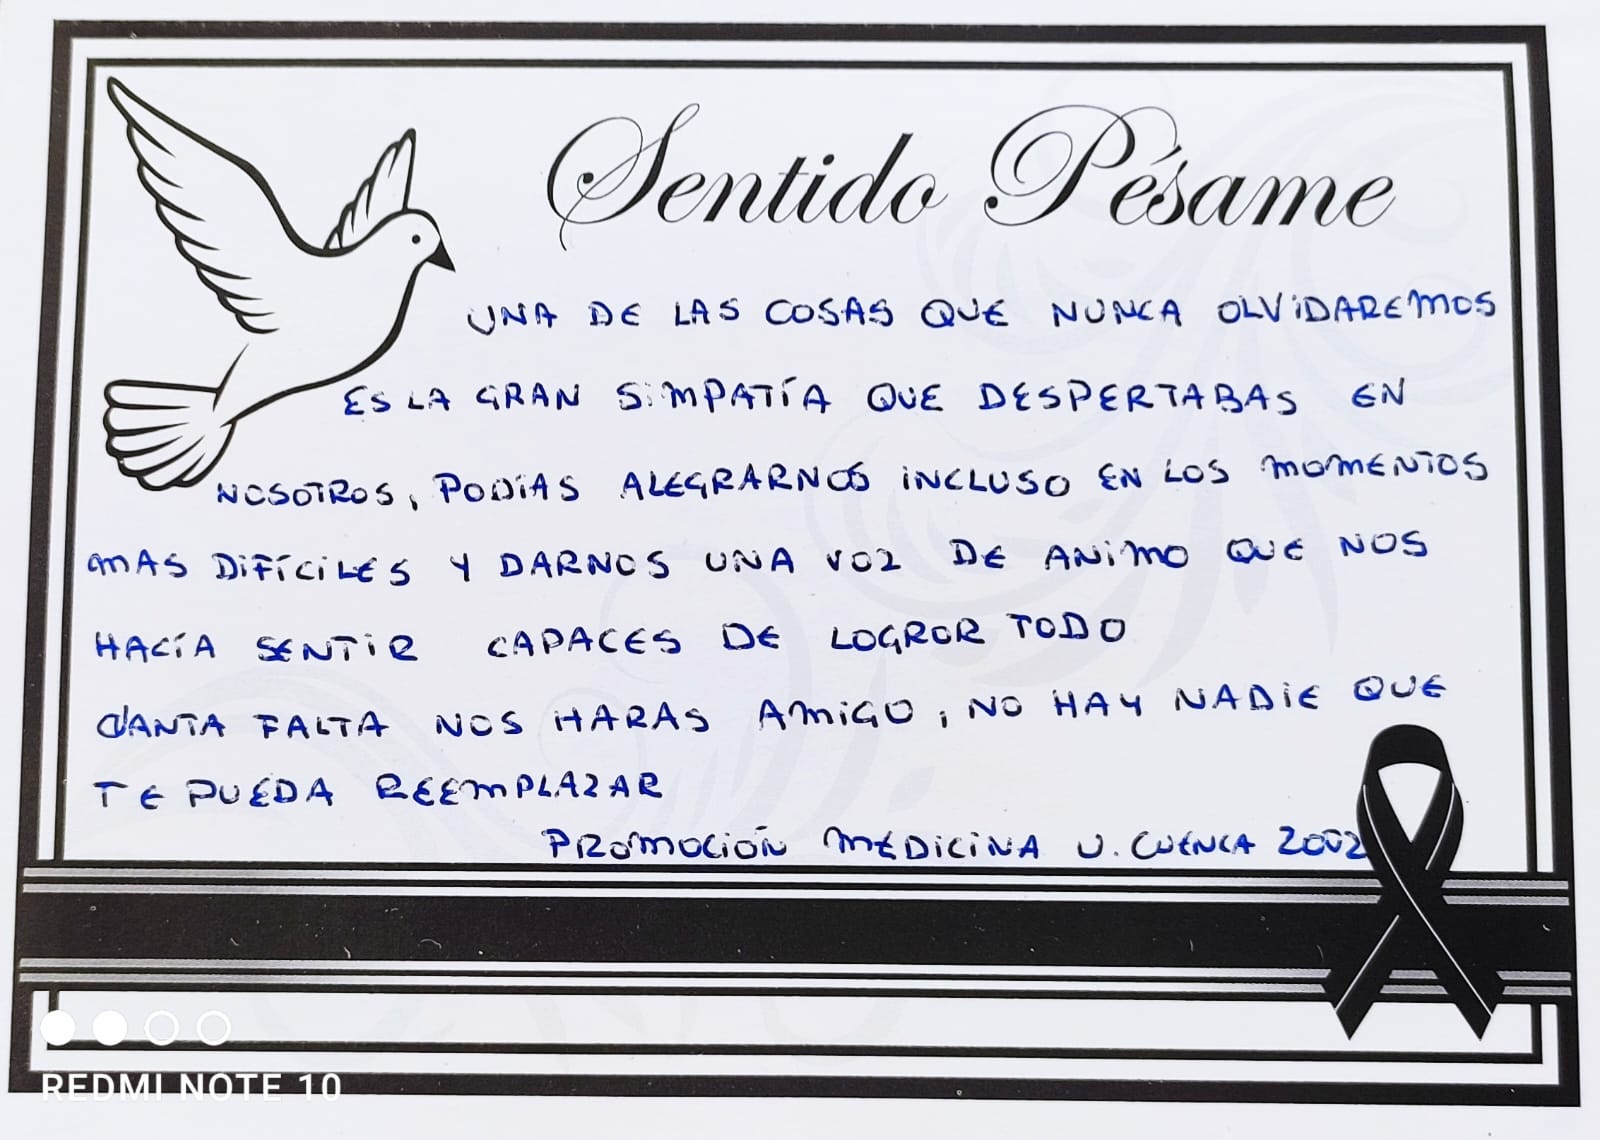 Sentido Pésame
UNA DE LAS COSAS QUE NUNCA OLVIDAREMOS
ES LA GRAN SIMPATÍA QUE DESPERTABAS EN
NOSOTROS, PODÍAS ALEGRARNOS INCLUSO EN LOS MOMENTOS
MAS DIFÍCILES Y DARNOS UNA VOZ DE ANIMO QUE NOS
HACÍA SENTIR CAPACES DE LOGROR TODO
CUANTA FALTA NOS HARAS AMIGO, NO HAY NADIE QUE
TE PUEDA REEMPLAZAR
PROMOCIÓN MEDICINA U. CUENCA 2002
REDMI NOTE 10